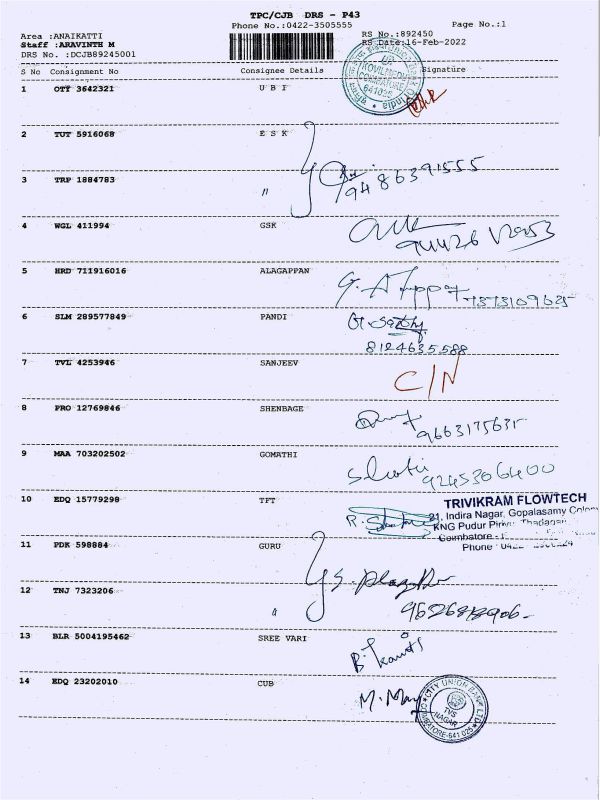 TPC/CJB DRS - P43
Phone No.:0422-3505555
Page No.:1
Area :ANAIKATTI
RS No.:892450
Staff :ARAVINTH M
RS Date:16-Feb-2022
DRS No. :DCJB89245001
S No Consignment No Consignee Details Signature
1 OTY 3642321 UBI
KOVILMEDU
COIMBATORE
641025
2 TUT 5916068 ESK
3 TRP 1884783 "
94 86391555
4 WGL 411994 GSK
5 HRD 711916016 ALAGAPPAN
6 SLM 289577849 PANDI
8124635588
7 TVL 4253946 SANJEEV
C/N
8 PRO 12769846 SHENBAGE
9663175631
9 MAA 703202502 GOMATHI
9245306400
10 EDQ 15779298 TFT
TRIVIKRAM FLOWTECH
21, Indira Nagar, Gopalasamy
KNG Pudur
Coimbatore -
Phone : 0422
11 PDK 598884 GURU
12 TNJ 7323206 "
13 BLR 5004195462 SREE VARI
14 EDQ 23202010 CUB
CITY UNION BANK LTD
TVS
NAGAR
COIMBATORE-641 025